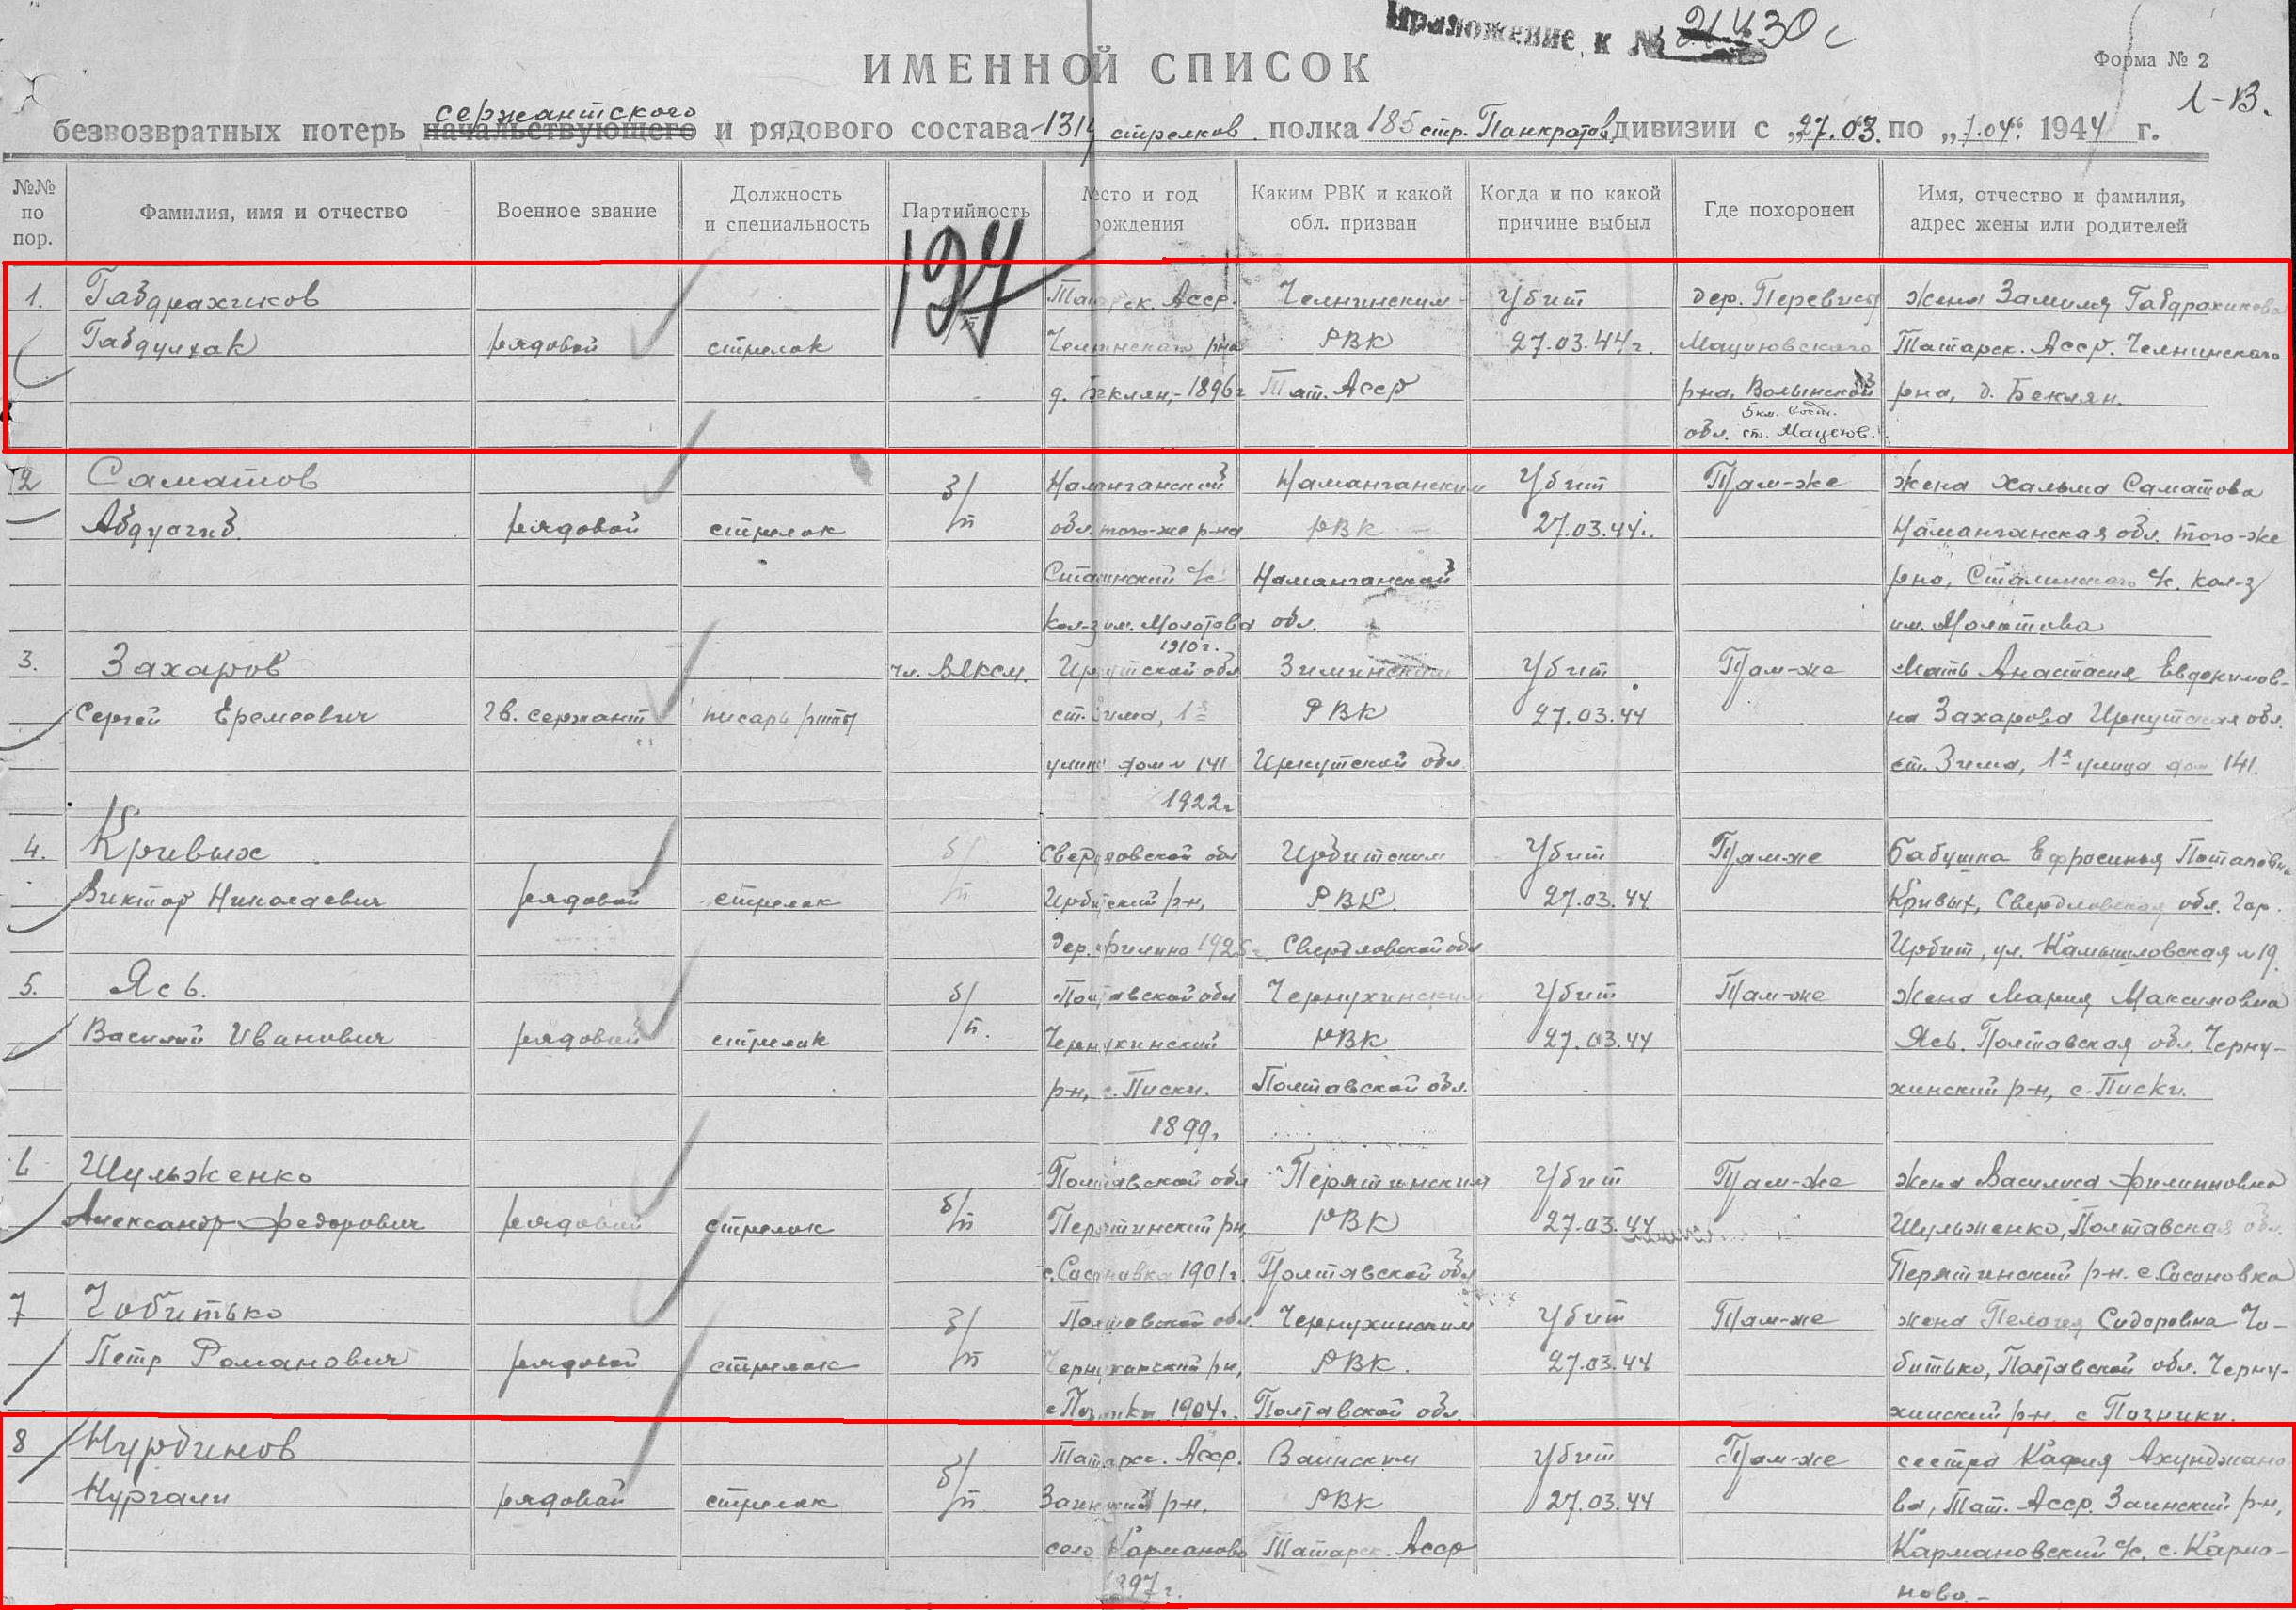 Приложение к № 21430с
ИМЕННОЙ СПИСОК
Форма № 2
1-В.
сержантского
безвозвратных потерь начальствующего и рядового состава 1319 стрелков. полка 185 стр. Панкратов. дивизии с „27.03. по „7.04". 1944 г.
№№ по пор.
Фамилия, имя и отчество
Военное звание
Должность и специальность
Партийность
Место и год рождения
Каким РВК и какой обл. призван
Когда и по какой причине выбыл
Где похоронен
Имя, отчество и фамилия, адрес жены или родителей
1. Габдрахиков Убит жена Замиля Габдрахикова
Габдулхак рядовой стрелок Челнинского р-на РВК 27.03.44г. Мациювского Татарск. Асср. Челнинского
д. Беклян,-1896г Тат. Асср р-на, Волынской рна, д. Беклян.
5 км. вост.
обл. ст. Мациов.
2 Саматов б/ Наманганской Наманганским Убит Там-же жена Хальма Саматова
рядовой стрелок п обл. того-же р-на РВК 27.03.44г. Наманганская обл. того-же
Сталинский с/с Наманганской рно, Сталинского с/с. кол-з
кол-з им. Молотова обл. им. Молотова
1910г.
3. Захаров чл. ВЛКСМ. Иркутской обл Зиминским Убит Там-же Мать Анастасия Евдокимов-
Сергей Еремеевич гв. сержант писарь роты ст. Зима, 1я РВК 27.03.44 на Захарова Иркутская обл.
улица дом № 141 Иркутской обл ст. Зима, 1я улица дом 141.
1922г
4. Кривых б/ Свердловской обл Ирбитским Убит Там же бабушка Ефросинья Потаповна
Виктор Николаевич рядовой стрелок п Ирбитский р-н, РВК. 27.03.44 Кривых, Свердловская обл. гор.
дер. Филино 1925г. Свердловской обл Ирбит, ул. Камышловская № 19.
5. Ясь. б/ Полтавской обл Чернухинским Убит Там-же жена Мария Максимовна
Василий Иванович рядовой стрелок п. Чернухинский РВК 27.03.44 Ясь. Полтавская обл. Черну-
р-н, с. Писки. Полтавской обл. хинский р-н, с-Писки.
1899г
6 Шульженко Полтавской обл Пирятинским Убит Там-же жена Василиса Филипповна
Александр Федорович рядовой стрелок б/п Пирятинский рн, РВК 27.03.44 Шульженко, Полтавская обл.
с. Сасиновка 1901г. Полтавской обл Пирятинский р-н. с. Сасиновка
7 Чобитько б/ Полтавской обл. Чернухинским Убит Там-же жена Пелагея Сидоровна Чо-
Петр Романович рядовой стрелок п Чернухинский рн, РВК. 27.03.44 битько, Полтавской обл. Черну-
с Позники 1904г. Полтавской обл. хинский р-н с Позники.
8 Нурдинов б/ Татарск. Асср. Заинским Убит Там-же сестра Кафия Ахунджано
Нургали рядовой стрелок п Заинский р-н. РВК 27.03.44 ва, Тат. Асср. Заинский р-н,
село Карманово Татарск. Асср Кармановский с/с. с. Карма-
1897г. ново.-